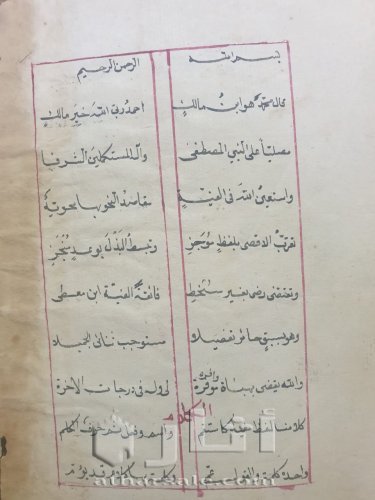 بسم الله الرحمن الرحيم
قال محمد هو ابن مالك احمد ربي الله خير مالك
مصلياً على النبي المصطفى وآله المستكملين الشرفا
واستعين الله في الفية مقاصد النحو بها محوية
تقرب الاقصى بلفظ موجز وتبسط البذل بوعد منجز
وتقتضي رضى بغير سخط فائقة الفية ابن معطي
وهو بسبق حائز تفضيلا مستوجب ثنائي الجميلا
والله يقضي بهبات وافرة لي وله في درجات الآخرة
الكلام
كلامنا لفظ مفيد كاستقم واسم وفعل ثم حرف الكلم
واحده كلمة والقول عم وكلمة بها كلام قد يؤم
أثارى
atharalak.com